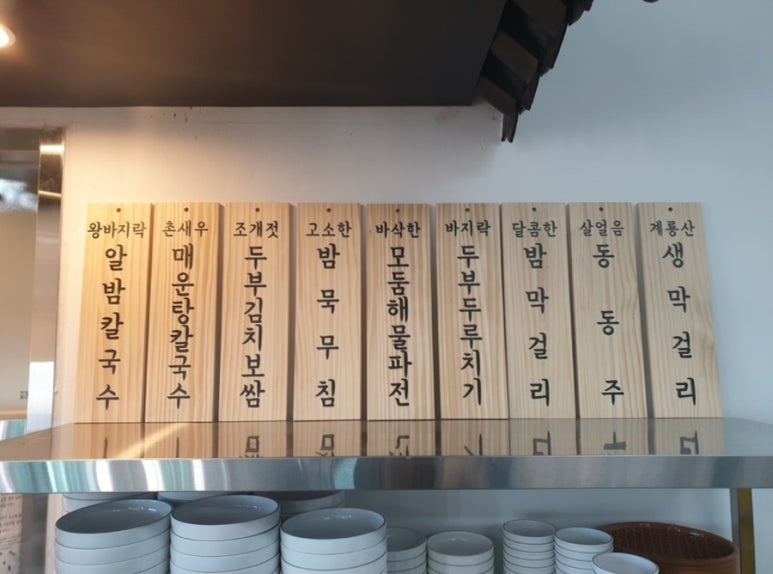 왕바지락
알밤칼국수
촌새우
매운탕칼국수
조개젓
두부김치보쌈
고소한
밤묵무침
바삭한
모둠해물파전
바지락
두부두루치기
달콤한
밤막걸리
살얼음
동동주
계룡산
생막걸리